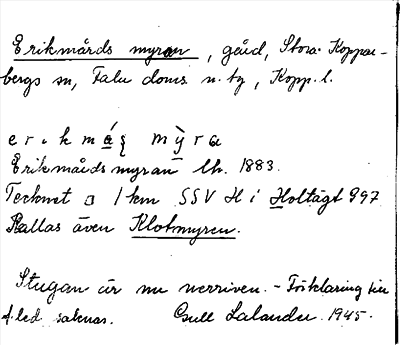 Erikmårds myran, gård, Stora Koppar-
bergs sn, Falu doms. n. tg, Kopp. l.
erikmáʂ mỳra
Erikmårdsmyran lh. 1883.
Tecknet □ 1 km SSV H i Holtägt 997
Kallas även Klotmyren.
Stugan är nu nerriven. - Förklaring till
f. led saknas. Gull Lalander 1945.